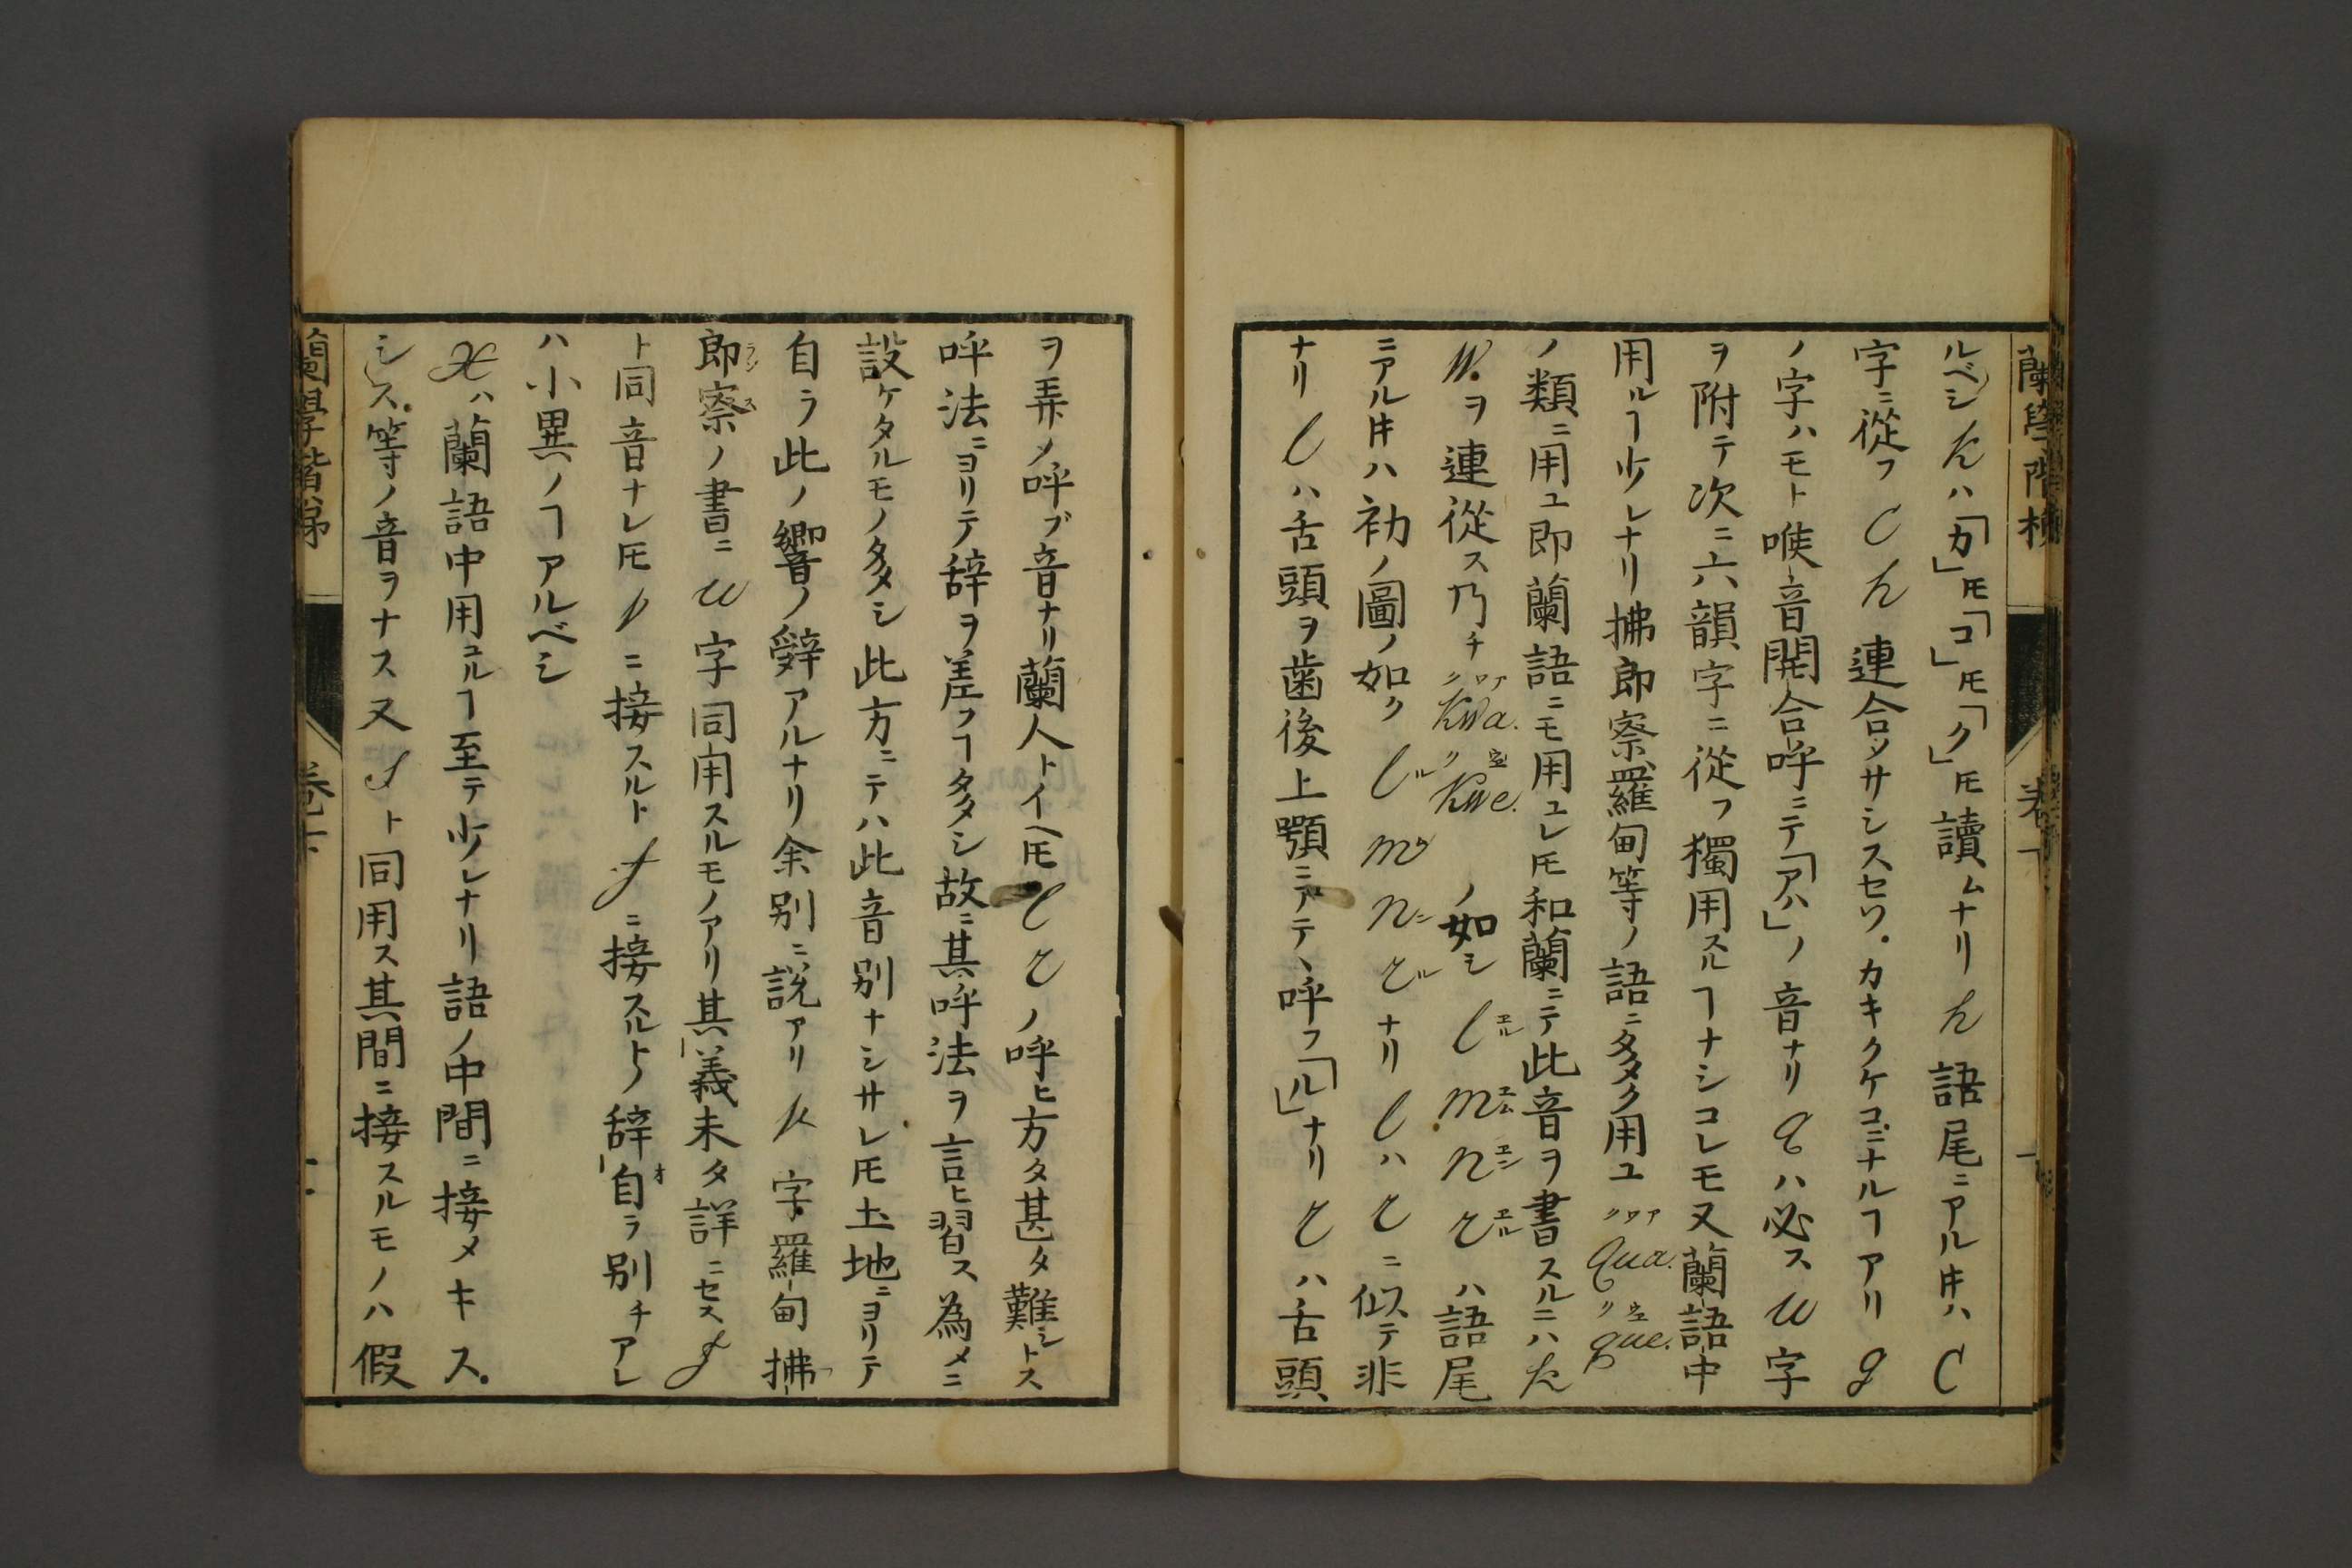 ルベシ k ハ「カ」𪜈「コ」𪜈「ク」𪜈讀ムナリ h 語尾ニアル𪜈ハ C
字ニ從フ C h 連合ツサシスセソ.カキクケコニナルヿアリ g
ノ字ハモト喉音開合呼ニテ「アハ」ノ音ナリ q ハ必ス u 字
ヲ附テ次ニ六韻字ニ從フ獨用スルヿナシコレモ又蘭語中
用ルヿ少レナリ拂郎察羅甸等ノ語ニ多ク用ユ qua. que.
ノ類ニ用ユ即蘭語ニモ用ユレ𪜈和蘭ニテ此音ヲ書スルニハ k
W.ヲ連從ス乃チ kwa. kwe. ノ如シ l エル m エム n エン r エル ハ語尾
ニアル𪜈ハ初ノ圖ノ如ク l ル m ム n ニ r ル ナリ l ハ r ニ似テ非
ナリ l ハ舌頭ヲ歯後上顎ニアテヽ呼フ「ル」ナリ r ハ舌頭
ヲ弄メ呼ブ音ナリ蘭人トイヘ𪜈 l r ノ呼ヒ方タ甚タ難シトス
呼法ニヨリテ辞ヲ差フヿ多タシ故ニ其呼法ヲ言ヒ習ス為メニ
設ケタルモノ多タシ此方ニテハ此音別ナシサレ𪜈土地ニヨリテ
自ラ此ノ響ノ辞アルナリ余別ニ説アリ k 字羅甸拂
郎察ノ書ニ u 字同用スルモノアリ其義未タ詳ニセス f
ト同音ナレ𪜈 p ニ接スルト f ニ接スルトノ辞自ラ別チアレ
ハ小異ノヿアルベシ
x ハ蘭語中用ユルヿ至テ少レナリ語ノ中間ニ接メキス.
シス.等ノ音ヲナス又 s ト同用ス其間ニ接スルモノハ假
蘭學階梯 卷下